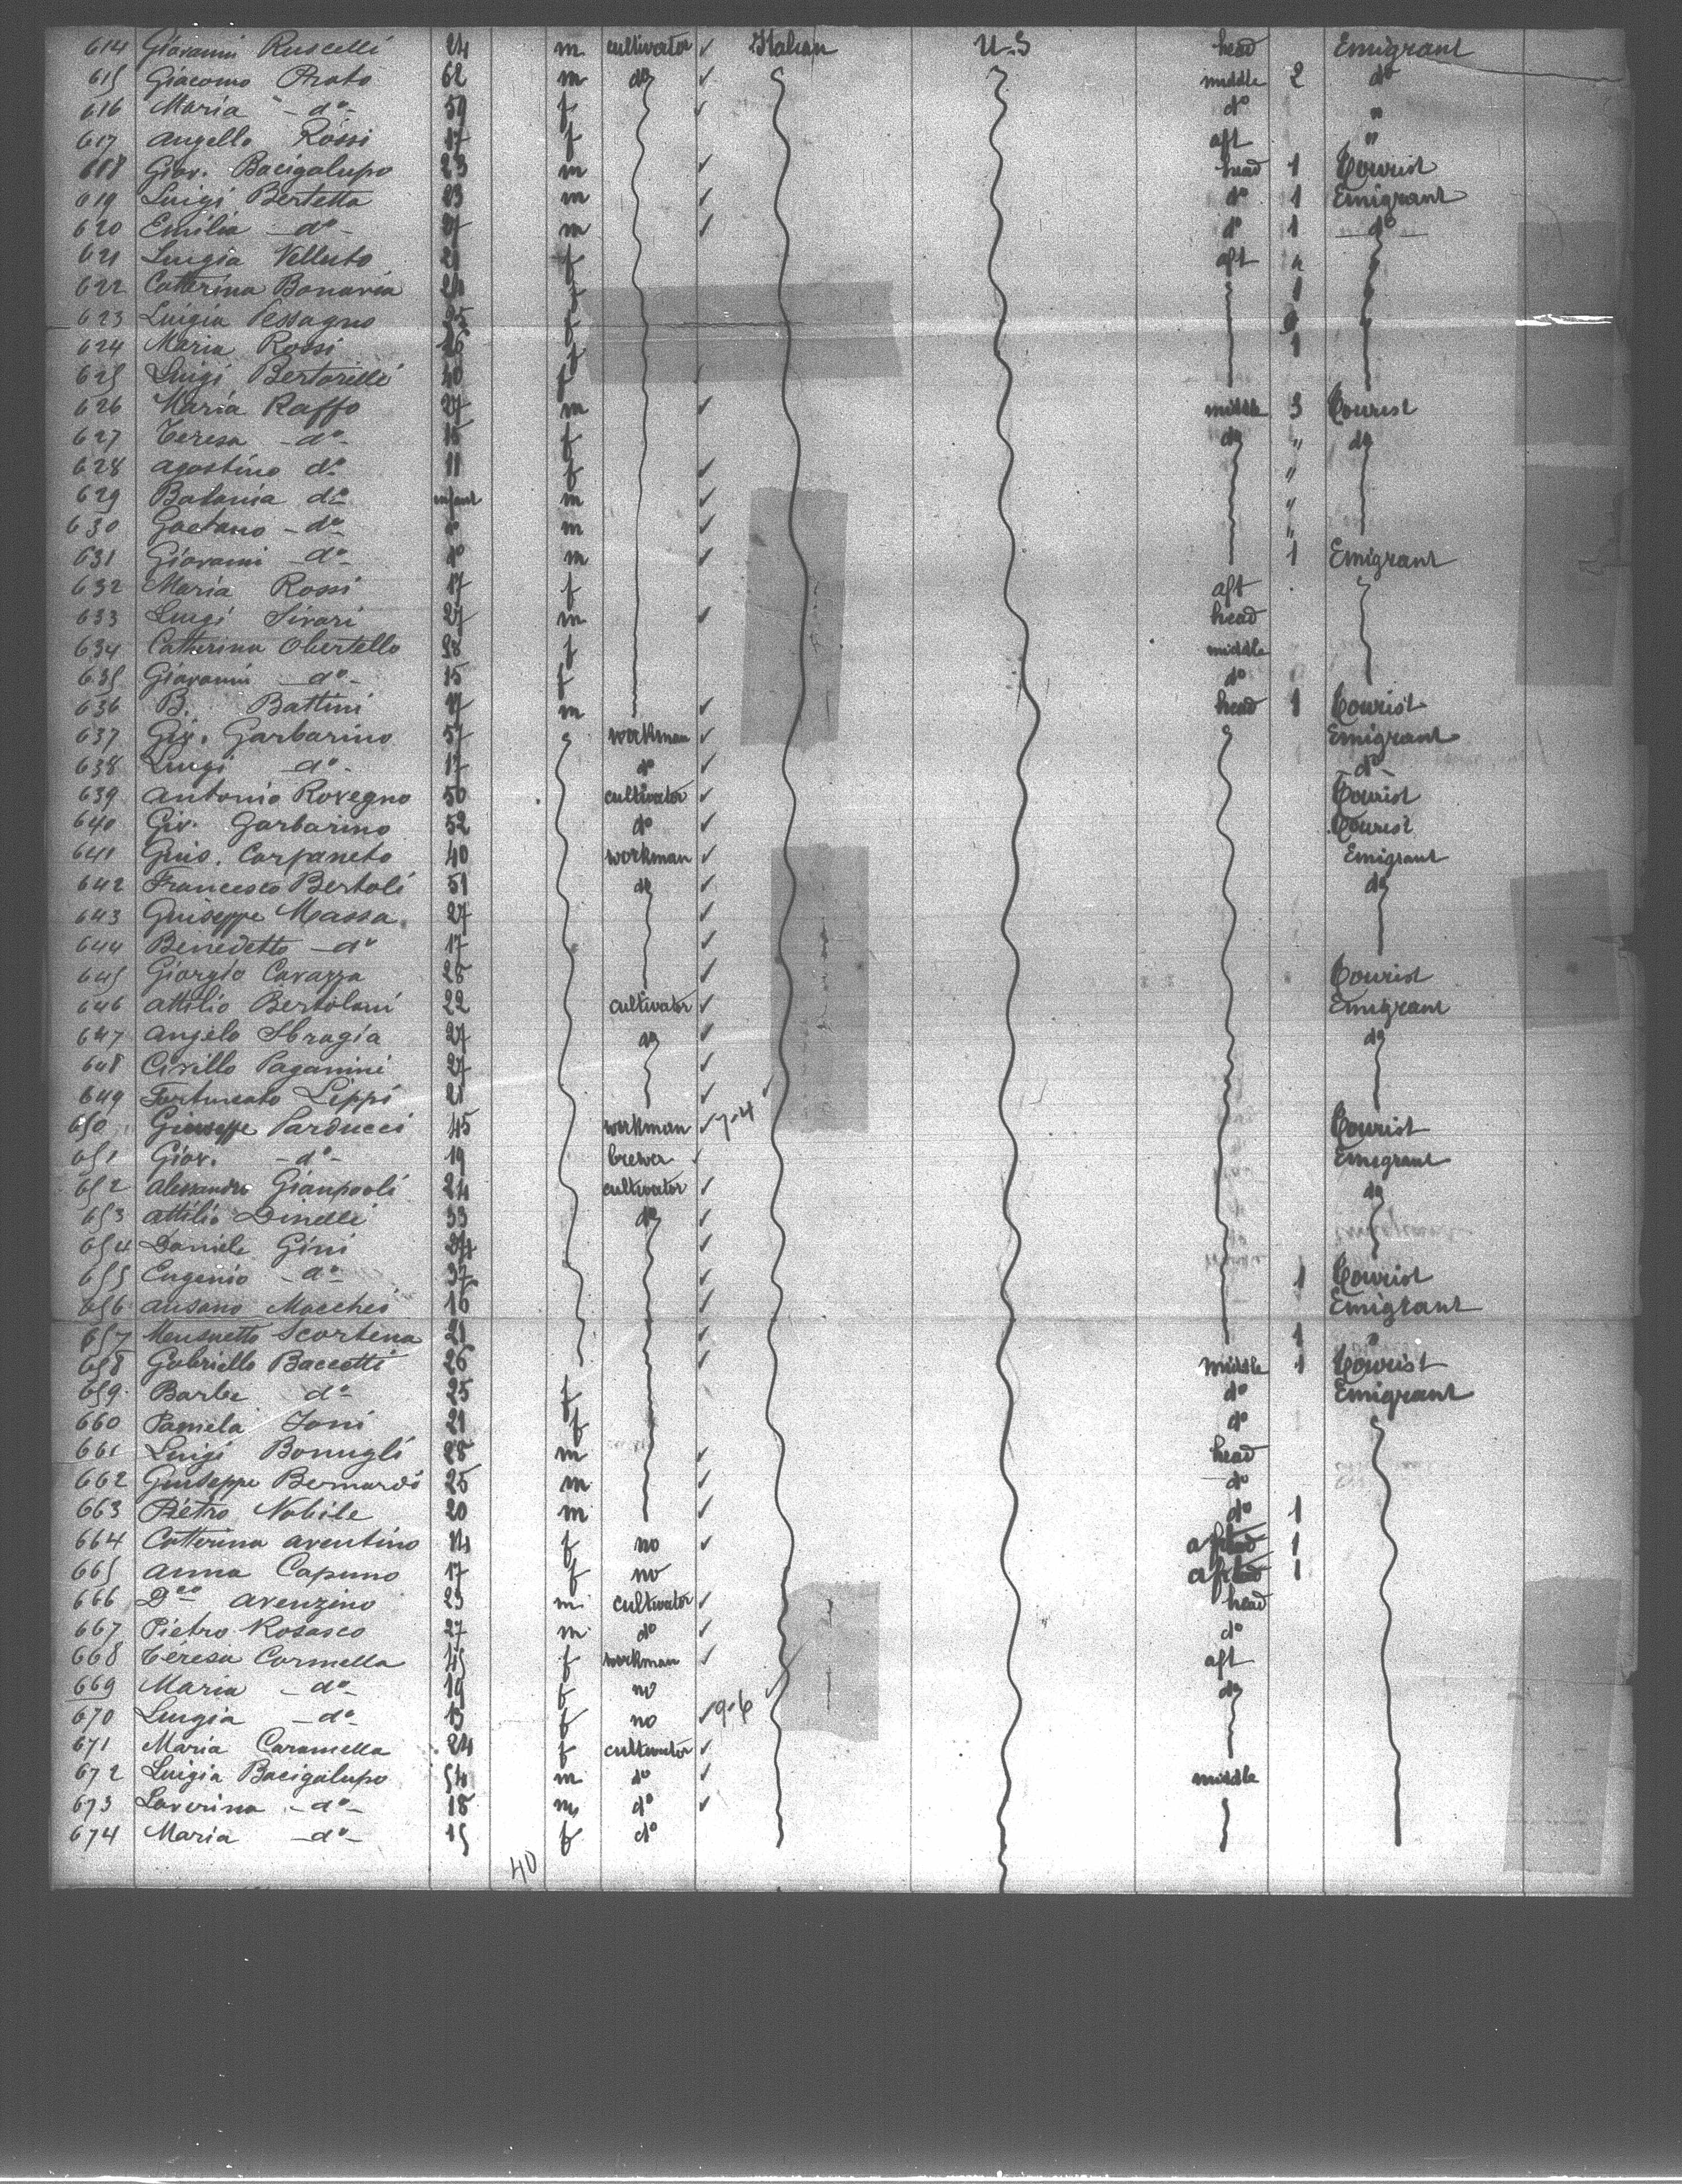 614 Giovanni Ruscelli 24 m cultivator ✓ Italian U.S head Emigrant
615 Giacomo Prato 62 m do ✓ middle 2 do
616 Maria - do - 59 f ✓ do "
617 Angello Rossi 17 f aft "
618 Giov. Bacigalupo 23 m ✓ head 1 Tourist
619 Luigi Bertetta 23 m ✓ do 1 Emigrant
620 Emilia - do - 37 m ✓ do 1 do
621 Luigia Velluto 21 f aft "
622 Catterina Bonavia 24 f 1
623 Luigia Pessagno 35 f
624 Maria Rossi 26 f 1
625 Luigi Bertorelli 40 f
626 Maria Raffo 27 m ✓ middle 3 Tourist
627 Teresa - do - 15 f do " do
628 Agostino do 11 f ✓ "
629 Batania do infant m ✓ "
630 Gaetano - do do m ✓ "
631 Giovanni - do - do m ✓ 1 Emigrant
632 Maria Rossi 17 f aft
633 Luigi Sivori 27 m ✓ head
634 Catterina Obertello 38 f middle
635 Giovanni - do - 15 f do
636 B. Battini 17 m ✓ head 1 Tourist
637 Gio. Garbarino 57 workman ✓ Emigrant
638 Luigi do - 17 do ✓ - do -
639 Antonio Rovegno 50 cultivator ✓ Tourist
640 Gio. Garbarino 52 do ✓ Tourist
641 Guis. Carpaneto 40 workman ✓ Emigrant
642 Francesco Bertoli 51 do ✓ do
643 Guiseppe Massa 27 ✓
644 Benedetto - do 17 ✓
645 Giorgio Cavazza 28 ✓ Tourist
646 Attilio Bertolani 22 cultivator ✓ Emigrant
647 Angelo Sbragia 27 do ✓ do
648 Cirillo Paganini 27 ✓
649 Fortunato Lippi 21 ✓
650 Giuseppe Parducci 45 workman ✓ 7-4 Tourist
651 Giov. - do - 19 brewer ✓ Emigrant
652 Alessandro Gianpaoli 24 cultivator ✓ do
653 Attilio Dinelli 33 do ✓
654 Daniele Gini 34 ✓
655 Eugenio - do - 37 ✓ 1 Tourist
656 Ausano Macchei 16 ✓ Emigrant
657 Mensuetto Scortena 21 ✓ 1 "
658 Gabriello Baccetti 26 ✓ middle 1 Tourist
659 Barbe do - 25 f do Emigrant
660 Pamela Toni 21 f do
661 Luigi Bonugli 28 m ✓ head
662 Guiseppe Bernardi 25 m ✓ do
663 Pietro Nobile 20 m ✓ do 1
664 Catterina Aventino 14 f no ✓ aft 1
665 Anna Capuno 17 f no aft 1
666 Dco Avenzino 23 m cultivator ✓ head
667 Pietro Rosasco 27 m do ✓ do
668 Teresa Carmella 45 f workman ✓ aft
669 Maria - do - 19 f no do
670 Luigia - do - 13 f no ✓ 9-6
671 Maria Caramella 24 f cultivator ✓
672 Luigia Bacigalupo 54 m do ✓ middle
673 Laverina - do - 18 m do ✓
674 Maria - do - 15 f do
40